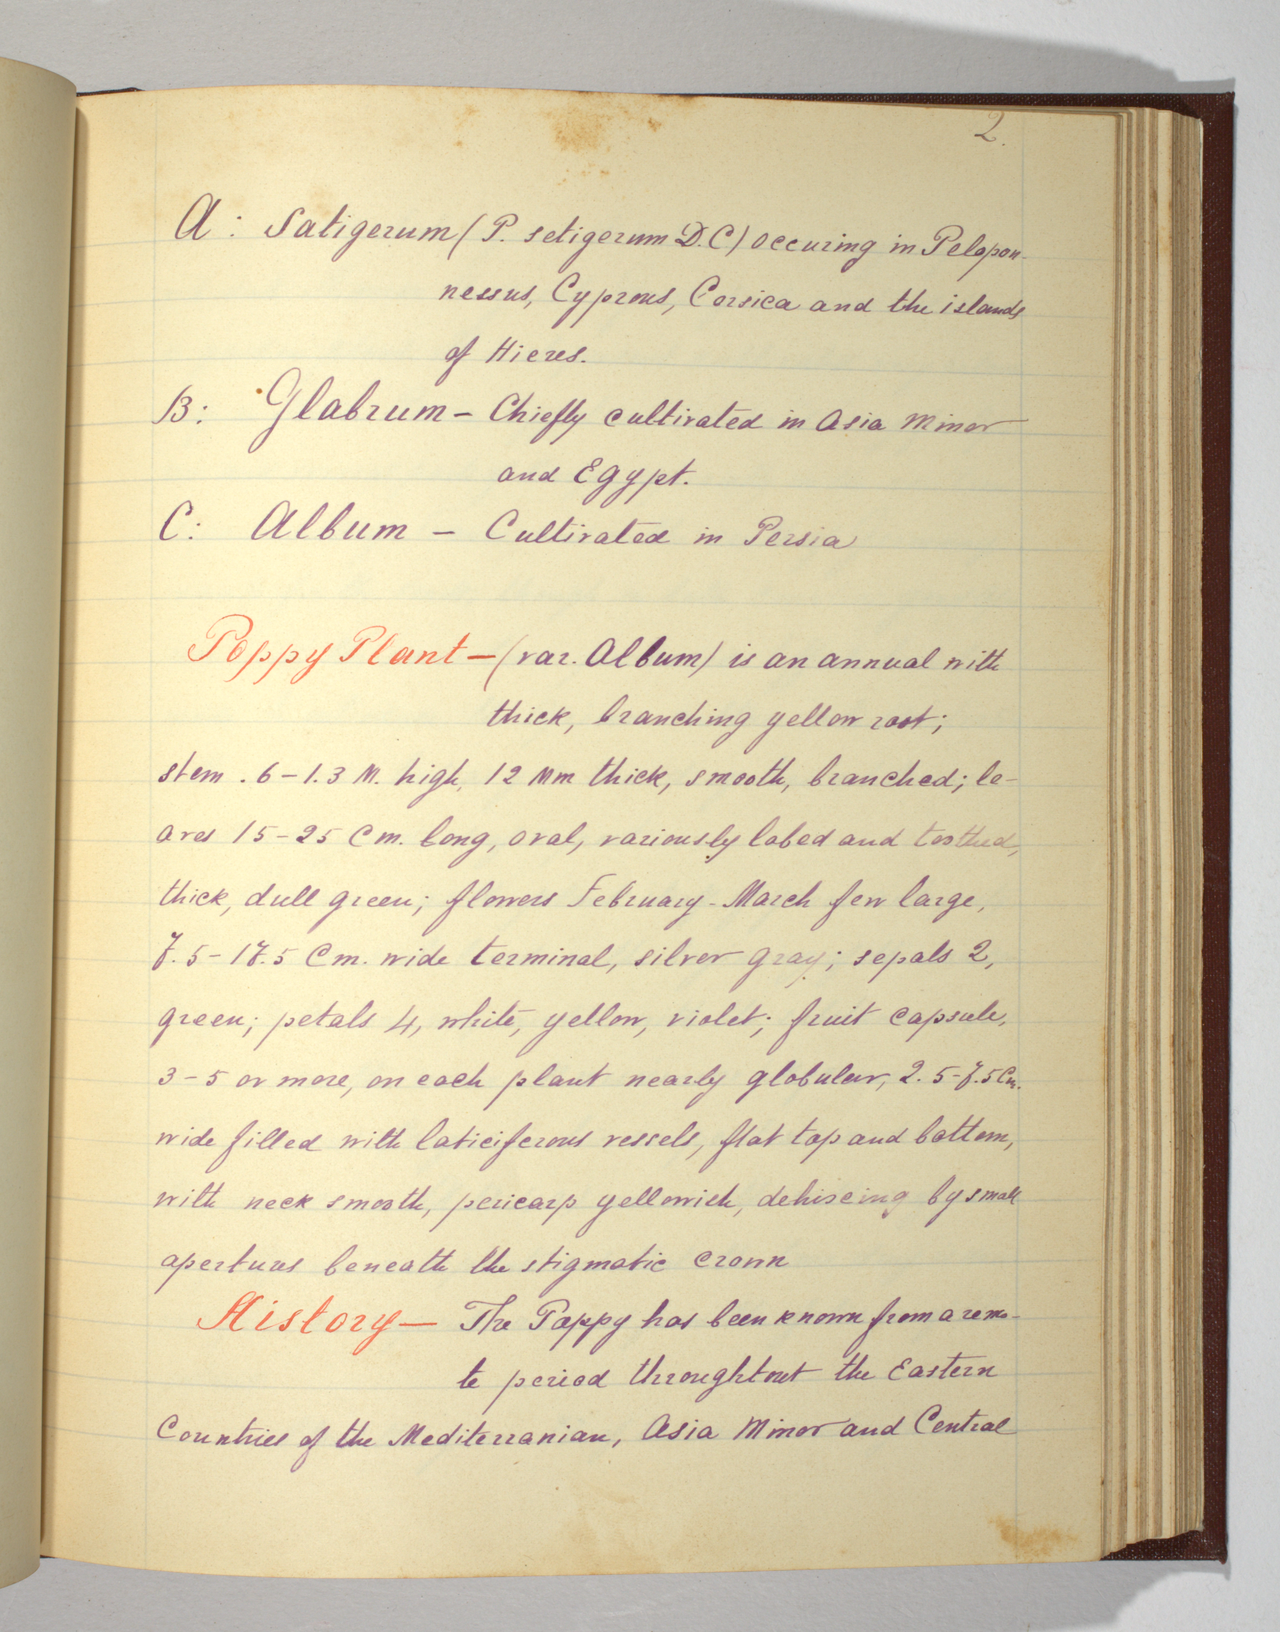 2.
A: Satigerum (P. setigerum D.C) occuring in Pelopon-
nessus, Cyprous, Corsica and the islands
of Hieres.
B: Glabrum – Chiefly cultivated in Asia Minor
and Egypt.
C: Album – Cultivated in Persia
Poppy Plant – (var. Album) is an annual with
thick, branching yellow root;
stem .6–1.3 M. high, 12 Mm thick, smooth, branched; le-
aves 15–25 Cm. long, oval, variously lobed and toothed,
thick, dull green; flowers February-March few large,
7.5–17.5 Cm. wide terminal, silver gray; sepals 2,
green; petals 4, white, yellow, violet; fruit capsule,
3–5 or more, on each plant nearly globular, 2.5–7.5 Cm.
wide filled with laticiferous vessels, flat top and bottom,
with neck smooth, pericarp yellowish, dehiscing by small
apertures beneath the stigmatic crown
History – The Poppy has been known from a remo-
te period throughtout the Eastern
Countries of the Mediterranian, Asia Minor and Central